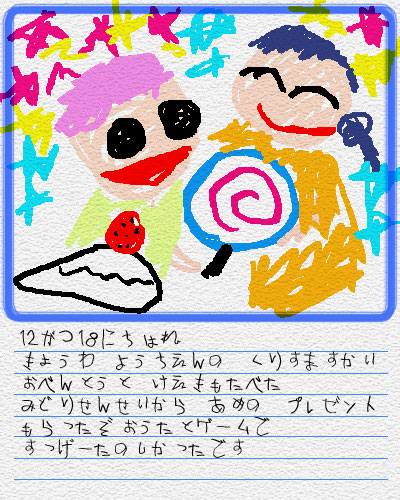 12がつ18にち はれ
きょうわ ようちえんの くりすますかい
おべんとうと けえきもたべた
みどりせんせいから あめの プレゼント
もらったぞ おうたとゲームで
すっげーたのしかったです